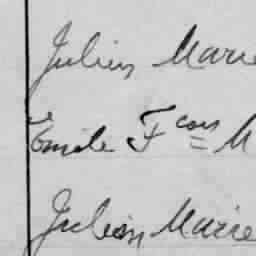 Julien Marie
Emile Fcois M
Julien Marie